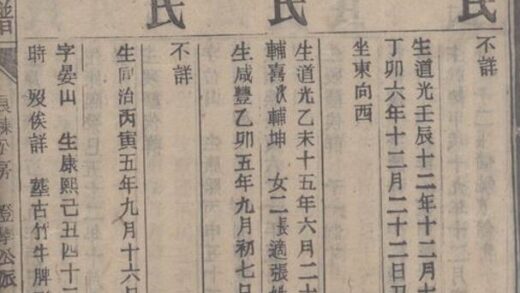 氏
不詳
生道光壬辰十二年十二月十
丁卯六年十二月二十二日丑
坐東向西
氏
生道光乙未十五年六月二十
輔喜次輔坤 女二長適張姓
生咸豐乙卯五年九月初七日
氏
不詳
生同治丙寅五年九月十六日
字晏山 生康熙己丑四十
時 歿俟詳 塟古竹牛脾形
譜
房 公派